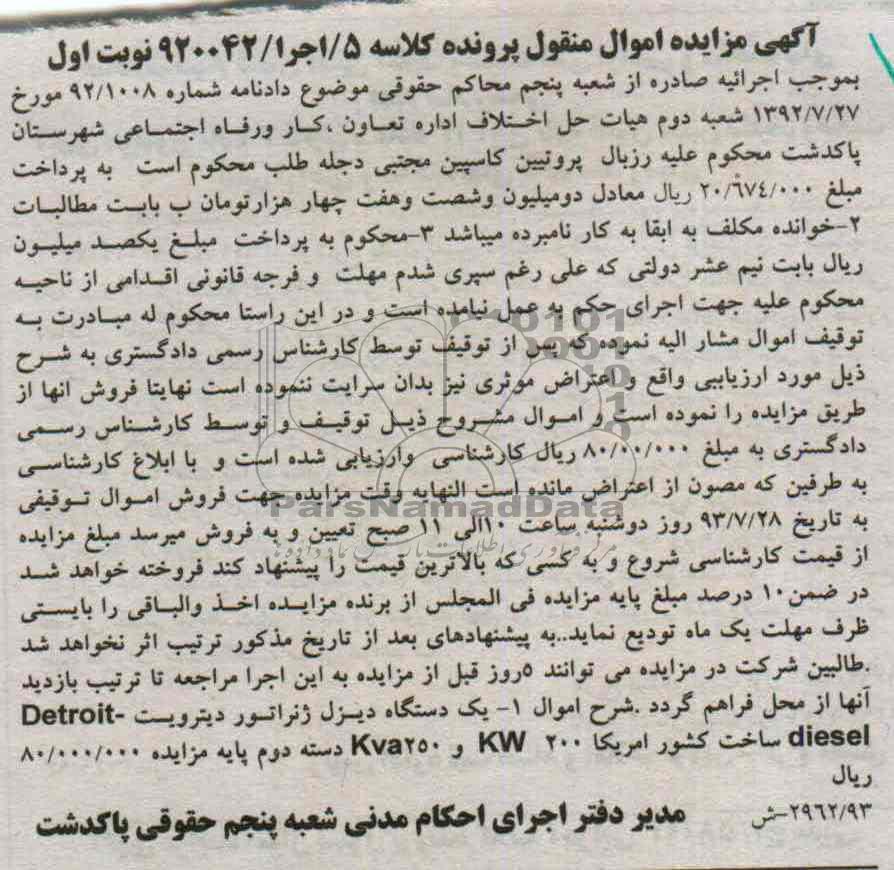 آگهی مزایده اموال منقول پرونده کلاسه ۵/اجرا/۹۲۰۰۴۲ نوبت اول
بموجب اجرائیه صادره از شعبه پنجم محاکم حقوقی موضوع دادنامه شماره ۹۲/۱۰۰۸ مورخ
۱۳۹۲/۷/۲۷ شعبه دوم هیات حل اختلاف اداره تعاون ،کار ورفاه اجتماعی شهرستان
پاکدشت محکوم علیه رزبال پروتیین کاسپین مجتبی دجله طلب محکوم است به پرداخت
مبلغ ۲۰/٦۷٤/۰۰۰ ریال معادل دومیلیون وشصت وهفت چهار هزارتومان ب بابت مطالبات
۲-خوانده مکلف به ابقا به کار نامبرده میباشد ۳-محکوم به پرداخت مبلغ یکصد میلیون
ریال بابت نیم عشر دولتی که علی رغم سپری شدم مهلت و فرجه قانونی اقدامی از ناحیه
محکوم علیه جهت اجرای حکم به عمل نیامده است و در این راستا محکوم له مبادرت به
توقیف اموال مشار الیه نموده که پس از توقیف توسط کارشناس رسمی دادگستری به شرح
ذیل مورد ارزیاببی واقع و اعتراض موثری نیز بدان سرایت ننموده است نهایتا فروش انها از
طریق مزایده را نموده است و اموال مشروح ذیل توقیف و توسط کارشناس رسمی
دادگستری به مبلغ ۸۰/۰۰/۰۰۰ ریال کارشناسی وارزیابی شده است و با ابلاغ کارشناسی
به طرفین که مصون از اعتراض مانده است النهایه وقت مزایده جهت فروش اموال توقیفی
به تاریخ ۹۳/۷/۲۸ روز دوشنبه ساعت ۱۰الی ۱۱ صبح تعیین و به فروش میرسد مبلغ مزایده
از قیمت کارشناسی شروع و به کسی که بالاترین قیمت را پیشنهاد کند فروخته خواهد شد
در ضمن۱۰ درصد مبلغ پایه مزایده فی المجلس از برنده مزایده اخذ والباقی را بایستی
ظرف مهلت یک ماه تودیع نماید..به پیشنهادهای بعد از تاریخ مذکور ترتیب اثر نخواهد شد
.طالبین شرکت در مزایده می توانند ۵روز قبل از مزایده به این اجرا مراجعه تا ترتیب بازدید
آنها از محل فراهم گردد .شرح اموال ۱- یک دستگاه دیزل ژنراتور دیترویت Detroit-
diesel ساخت کشور امریکا ۲۰۰ KW و ۲۵۰Kva دسته دوم پایه مزایده ۸۰/۰۰۰/۰۰۰
ریال
۲۹٦۲/۹۳-ش
مدیر دفتر اجرای احکام مدنی شعبه پنجم حقوقی پاکدشت
ParsNamadData